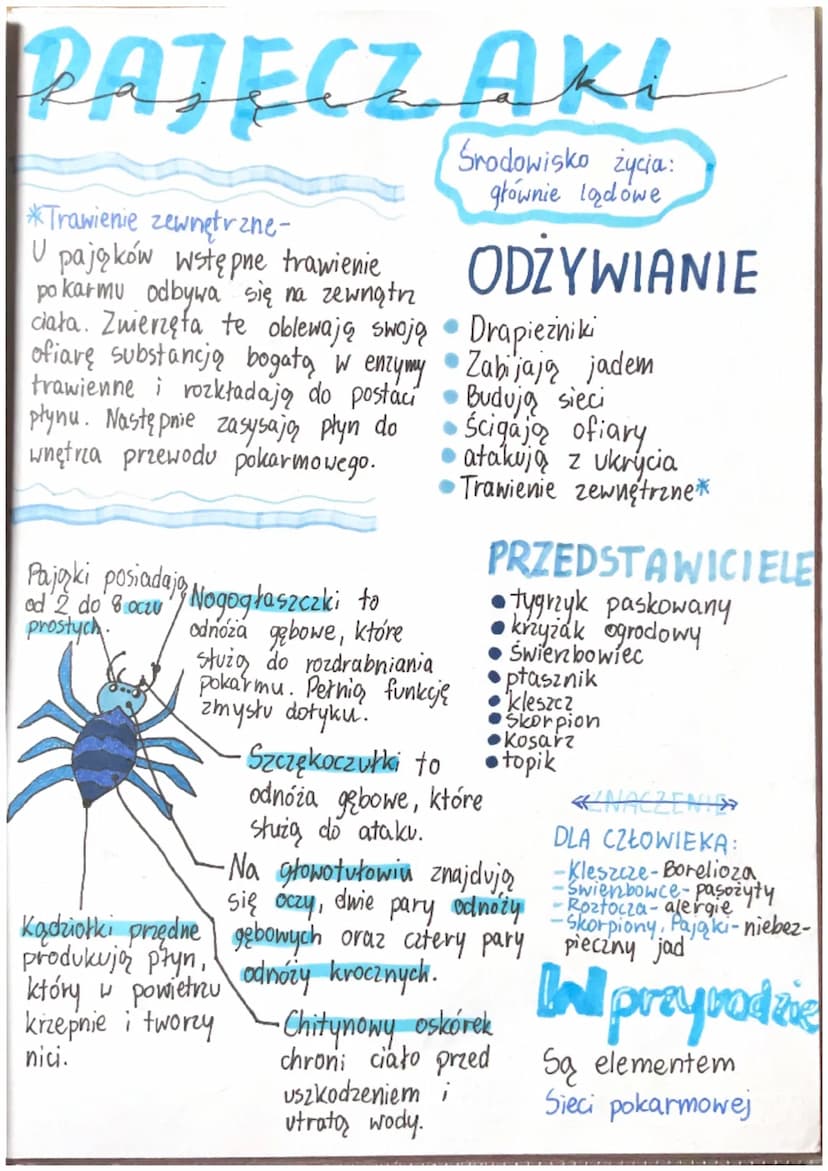 PAJĘCZAKI
Pajęczaki
Środowisko życia:
głównie lądowe
*Trawienie zewnętrzne-
U pająków wstępne trawienie
pokarmu odbywa się na zewnątrz
ciała. Zwierzęta te oblewają swoją
ofiarę substancją bogatą w enzymy
trawienne i rozkładają do postaci
płynu. Następnie zasysają płyn do
wnętrza przewodu pokarmowego.
ODŻYWIANIE
Drapieżniki
Zabijają jadem
Budują sieci
Ścigają ofiary
atakują z ukrycia
Trawienie zewnętrzne*
Pająki posiadają
od 2 do 8 oczu
prostych.
Nogogłaszczki to
odnóża gębowe, które
służą do rozdrabniania
pokarmu. Pełnią funkcję
zmysłu dotyku.
Szczękoczułki to
odnóża gębowe, które
służą do ataku.
Na głowotułowiu znajdują
się oczy, dwie pary odnóży
gębowych oraz cztery pary
odnóży krocznych.
Kądziołki przędne
produkują płyn,
który w powietrzu
krzepnie i tworzy
nici.
Chitynowy oskórek
chroni ciało przed
uszkodzeniem i
utratą wody.
PRZEDSTAWICIELE
tygrzyk paskowany
krzyżak ogrodowy
świerzbowiec
ptasznik
kleszcz
skorpion
kosarz
topik
ZNACZENIE
DLA CZŁOWIEKA:
-Kleszcze-Borelioza
-Świerzbowce-pasożyty
-Roztocza-alergie
-Skorpiony, Pająki-niebez-
pieczny jad
W przyrodzie
Są elementem
Sieci pokarmowej